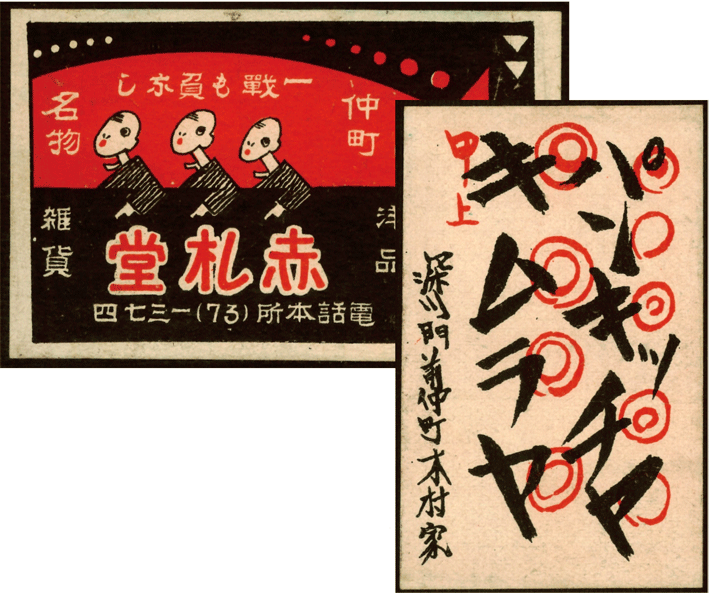 一戰も負なし
仲町
名物
洋品
雑貨
赤札堂
電話本所(73)一三七四
パンキッチヤ
キムラヤ
甲上
深川門前仲町木村家